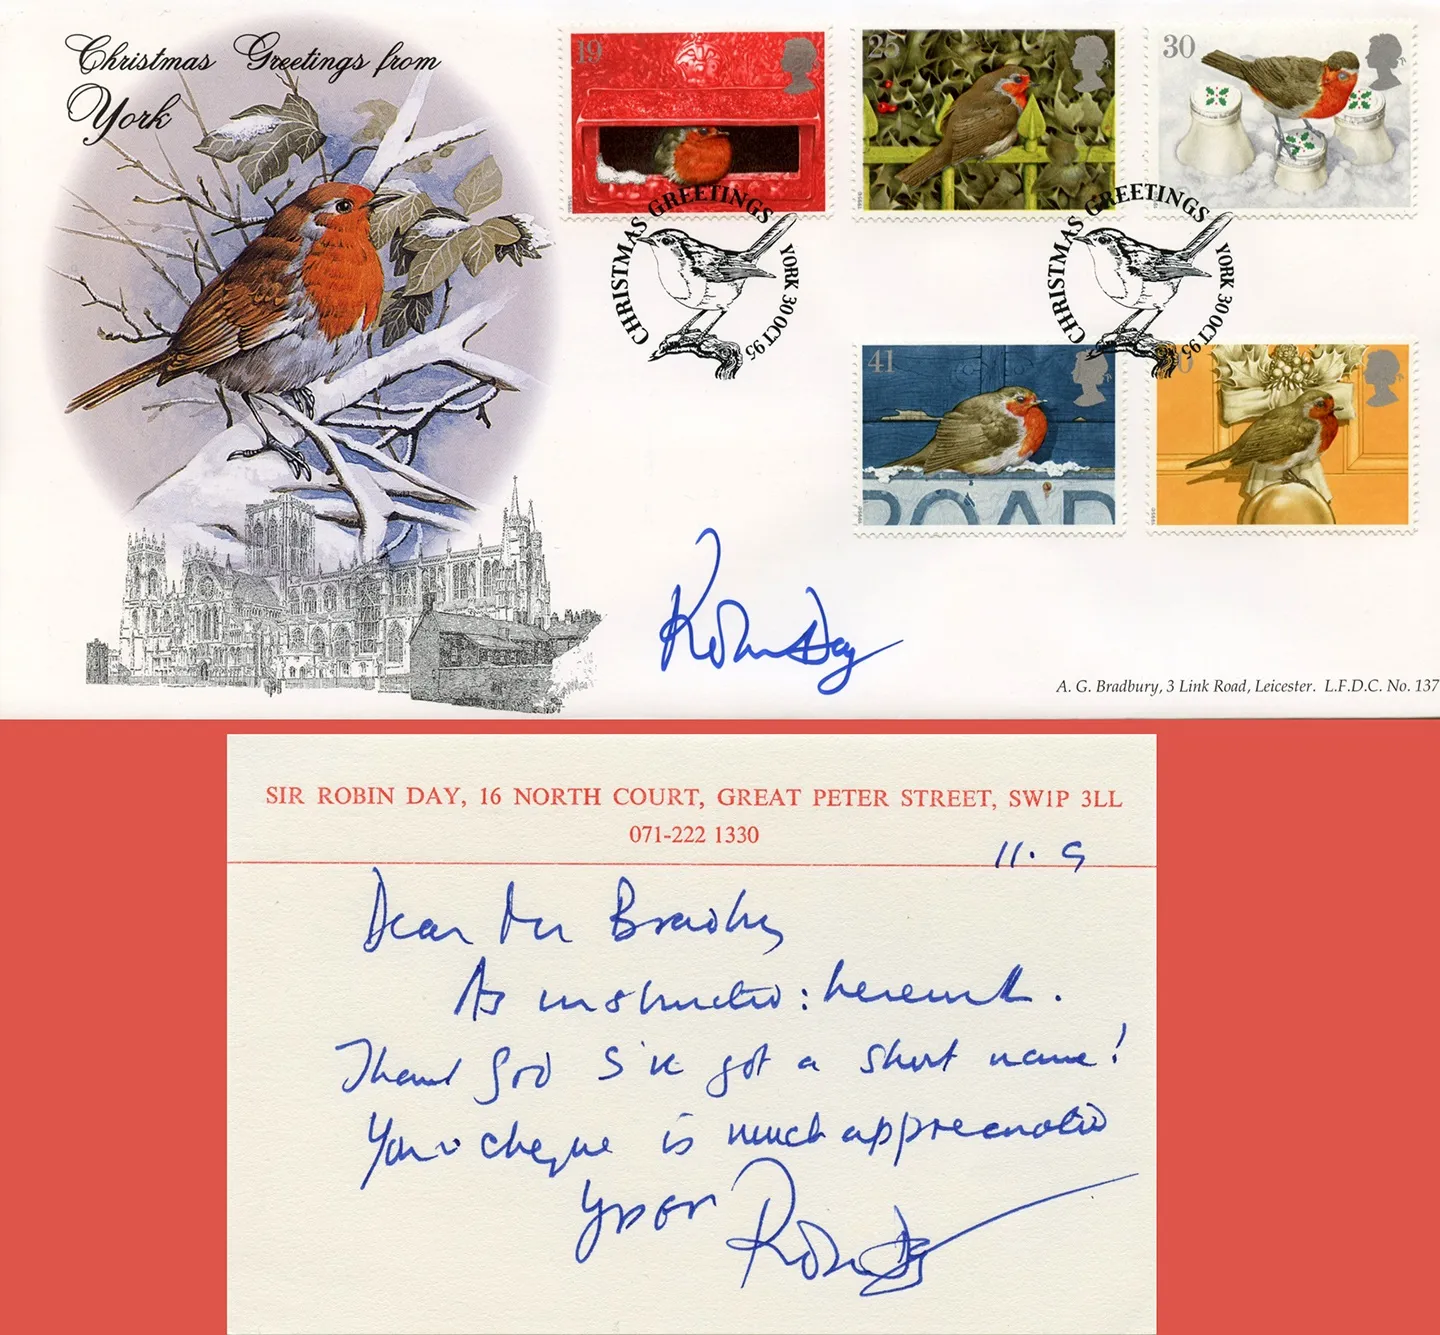 Christmas Greetings from
York
19
25
30
CHRISTMAS GREETINGS YORK 30 OCT 95
CHRISTMAS GREETINGS YORK 30 OCT 95
41
ROAD
Robin Day
A. G. Bradbury, 3 Link Road, Leicester. L.F.D.C. No. 137
SIR ROBIN DAY, 16 NORTH COURT, GREAT PETER STREET, SW1P 3LL
071-222 1330
11. 9
Dear Mr Bradbury
As instructed: herewith.
Thank God I've got a short name!
Your cheque is much appreciated
Yours
Robin Day